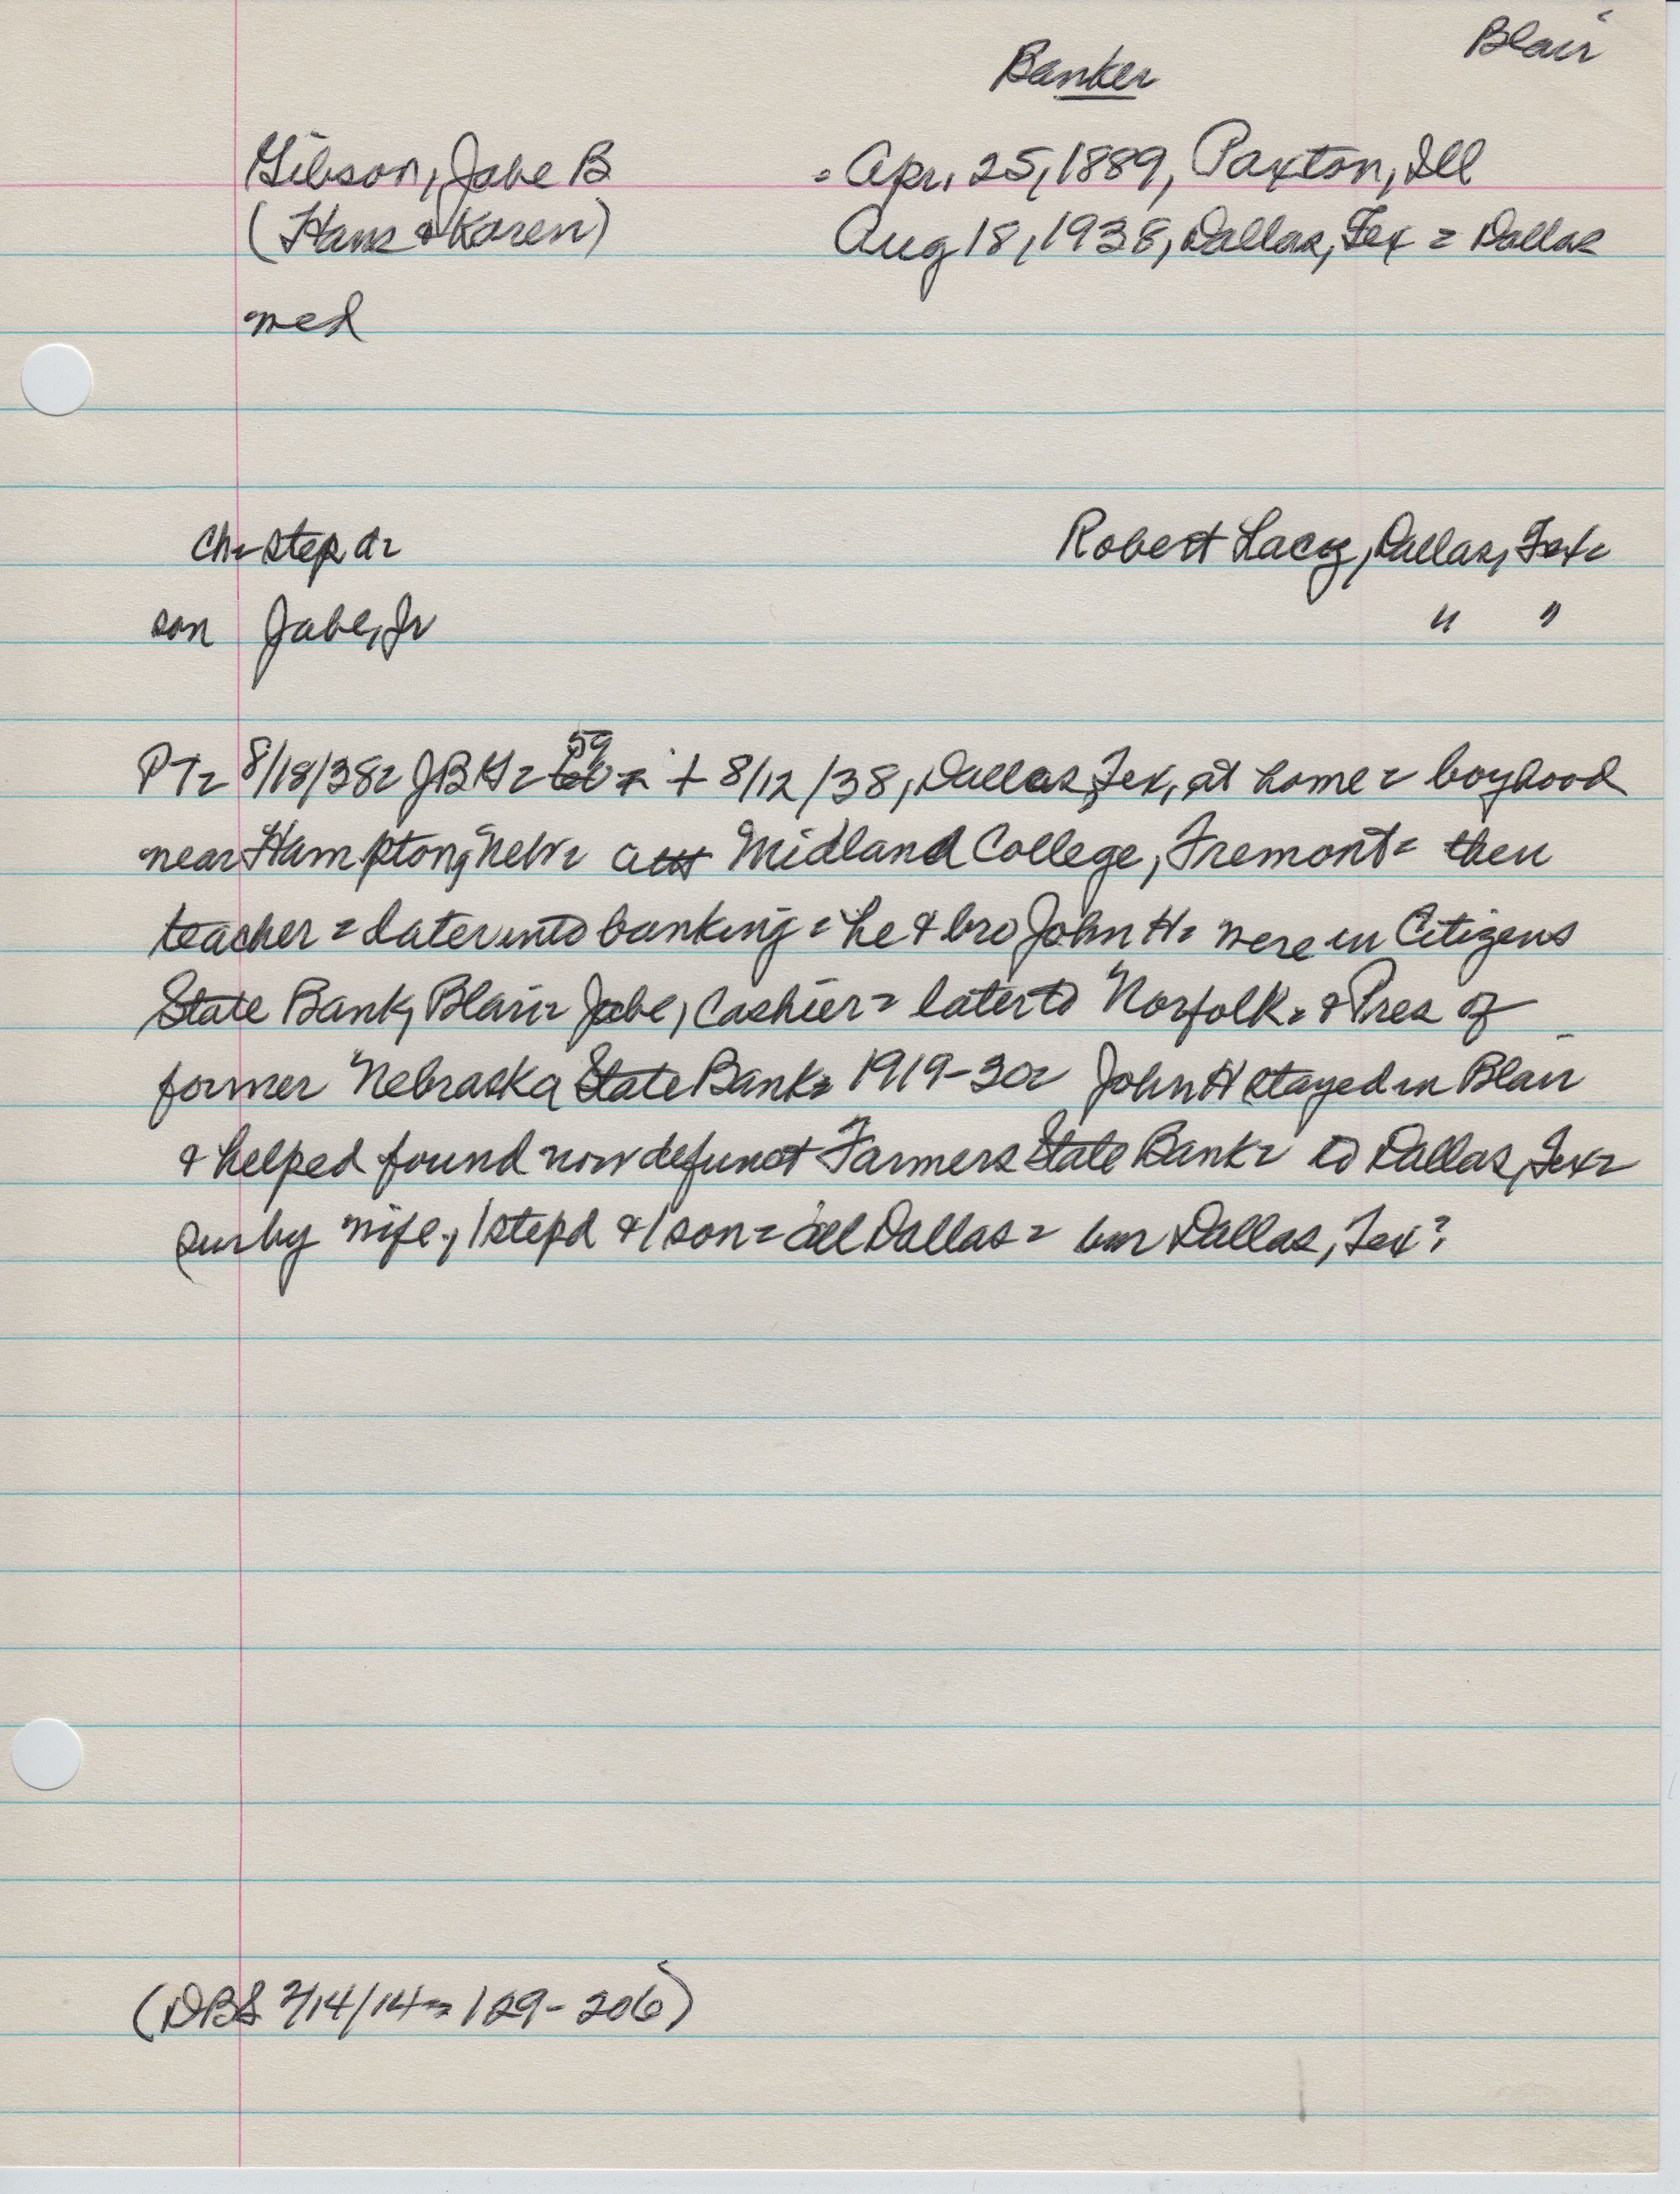 Blair
Banker
Gibson, Jabe B = Apr. 25, 1889, Paxton, Ill
(Hans & Karen) Aug 18, 1938, Dallas, Tex = Dallas
med
Ch= step d= Robert Lacy, Dallas, Tex=
son Jabe, Jr " "
PT= 8/18/38= JBG= 59 + 8/12/38, Dallas, Tex, at home = boyhood
near Hampton, Nebr= att Midland College, Fremont = then
teacher = later into banking = he & bro John H= were in Citizens
State Bank, Blair= Jabe, Cashier= later to Norfolk= & Pres of
former Nebraska State Bank= 1919-30= John H stayed in Blair
& helped found now defunct Farmers State Bank= to Dallas, Tex=
sur by wife, 1 step d & 1 son= all Dallas= bur Dallas, Tex?
(DBS 7/14/14= 129-206)